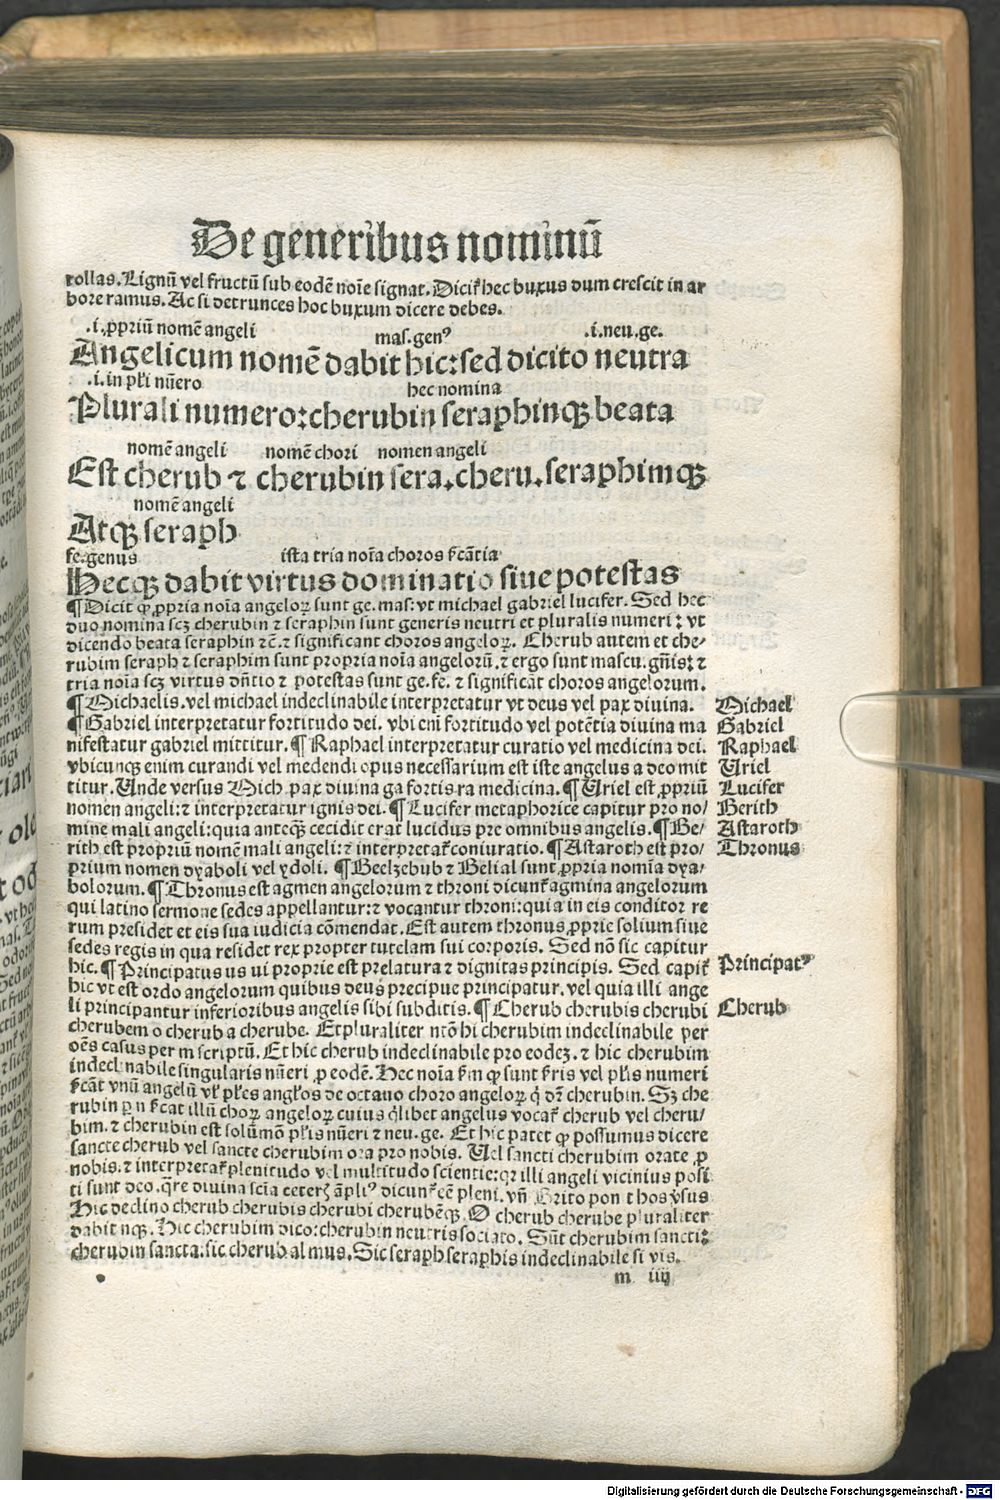 De generibus nominū
rollas. Lignū vel fructū sub eodē noīe signat. Dicit᷑ hec buxus dum crescit in ar
bore ramus. Ac si detrunces hoc buxum dicere debes.
.i. ꝓpriū nomē angeli mas. genꝰ .i. neu. ge.
Angelicum nomē dabit hic: sed dicito neutra
.i. in pl̄i nūero hec nomina
Plurali numero: cherubin seraphinqꝫ beata
nomē angeli nomē chori nomen angeli
Est cherub ⁊ cherubin sera. cheru. seraphimqꝫ
nomē angeli
Atqꝫ seraph
fe. genus ista tria noīa choros sc̄ātia
Hecqꝫ dabit virtus dominatio siue potestas
¶ Dicit ꝙ ꝓpria noīa angeloꝝ sunt ge. mas. vt michael gabriel lucifer. Sed hec
duo nomina scꝫ cherubin ⁊ seraphin sunt generis neutri et pluralis numeri: vt
dicendo beata seraphin ⁊c̄. ⁊ significant choros angeloꝝ. Cherub autem et che-
rubim seraph ⁊ seraphim sunt propria noīa angelorū. ⁊ ergo sunt mascu. gn̄is: ⁊
tria noīa scꝫ virtus dn̄tio ⁊ potestas sunt ge. fe. ⁊ significāt choros angelorum.
¶ Michaelis. vel michael indeclinabile interpretatur vt deus vel pax diuina.
¶ Gabriel interpretatur fortitudo dei. vbi enī fortitudo vel potētia diuina ma
nifestatur gabriel mittitur. ¶ Raphael interpretatur curatio vel medicina dei.
vbicunqꝫ enim curandi vel medendi opus necessarium est iste angelus a deo mit
titur. Unde versus Mich. pax diuina ga fortis ra medicina. ¶ Uriel est ꝓpriū
nomen angeli: ⁊ interpretatur ignis dei. ¶ Lucifer metaphorice capitur pro no/
mine mali angeli: quia anteqꝫ cecidit erat lucidus pre omnibus angelis. ¶ Be/
rith est propriū nomē mali angeli: ⁊ interpretat᷑ coniuratio. ¶ Astaroth est pro/
prium nomen dyaboli vel ydoli. ¶ Beelzebub ⁊ Belial sunt ꝓpria nomīa dya/
bolorum. ¶ Thronus est agmen angelorum ⁊ throni dicunt᷑ agmina angelorum
qui latino sermone sedes appellantur: ⁊ vocantur throni: quia in eis conditor re
rum presidet et eis sua iudicia cōmendat. Est autem thronus ꝓprie solium siue
sedes regis in qua residet rex propter tutelam sui corporis. Sed nō sic capitur
hic. ¶ Principatus us ui proprie est prelatura ⁊ dignitas principis. Sed capit᷑
hic vt est ordo angelorum quibus deus precipue principatur. vel quia illi ange
li principantur inferioribus angelis sibi subditis. ¶ Cherub cherubis cherubi
cherubem o cherub a cherube. Et pluraliter ntō hi cherubim indeclinabile per
oēs casus per m scriptū. Et hic cherub indeclinabile pro eodeꝫ. ⁊ hic cherubim
indeclinabile singularis nūeri ꝓ eodē. Hec noīa ꝙ sunt vel numeri
vnū angelū de octauo choro angeloꝝ dr̄ cherubin. Sꝫ che
rubin illū choꝝ angeloꝝ cuius qͥlibet angelus vocat᷑ cherub vel cheru/
bim. ⁊ cherubin est solūmō nūeri ⁊ neu. ge. Et hic patet ꝙ possumus dicere
sancte cherub vel sancte cherubim ora pro nobis. Uel sancti cherubim orate ꝓ
nobis. ⁊ interpretat᷑ plenitudo vel multitudo scientie: qꝛ illi angeli vicinius posi
ti sunt deo. qͣre diuina scīa ceterꝫ āpliꝰ dicunt᷑ eē pleni. vn̄ Brito pon t hos v̄sus
Hic declino cherub cherubis cherubi cherubēqꝫ. O cherub cherube pluraliter
dabit nqꝫ. Hic cherubim dico: cherubin neutris sociato. Sūt cherubim sancti:
cherubin sancta: sic cherub almus. Sic seraph seraphis indeclinabile si vis.
m iiij
Michael
Gabriel
Raphael
Uriel
Lucifer
Berith
Astaroth
Thronus
Principatꝰ
Cherub
Digitalisierung gefördert durch die Deutsche Forschungsgemeinschaft - DFG